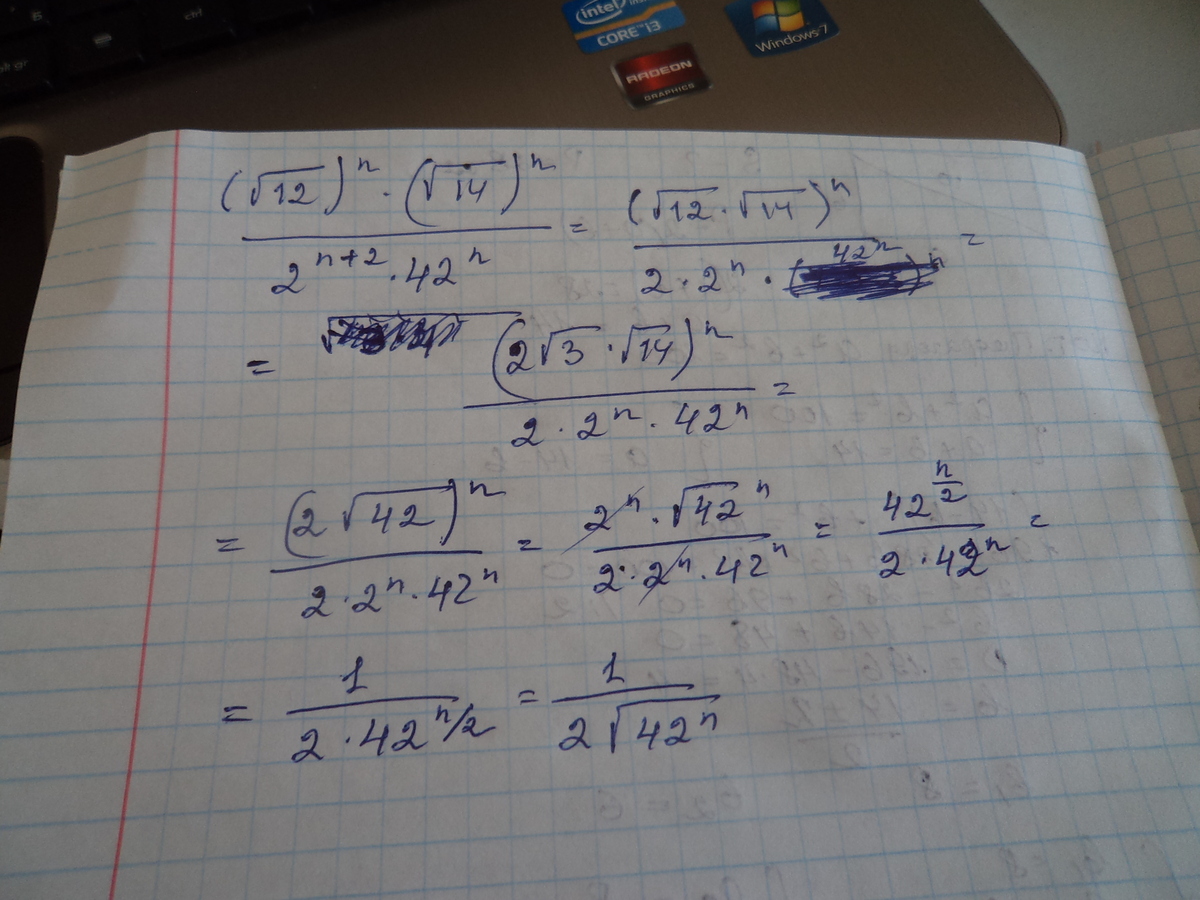 intel
CORE i3
RADEON
GRAPHICS
Windows 7
ctrl
(√12)ⁿ · (√14)ⁿ / 2ⁿ⁺² · 42ⁿ = (√12 · √14)ⁿ / 2 · 2ⁿ · 42ⁿ =
= (2√3 · √14)ⁿ / 2 · 2ⁿ · 42ⁿ =
= (2√42)ⁿ / 2 · 2ⁿ · 42ⁿ = 2ⁿ · √42ⁿ / 2 · 2ⁿ · 42ⁿ = 42^(n/2) / 2 · 42ⁿ =
= 1 / 2 · 42^(n/2) = 1 / 2√42ⁿ